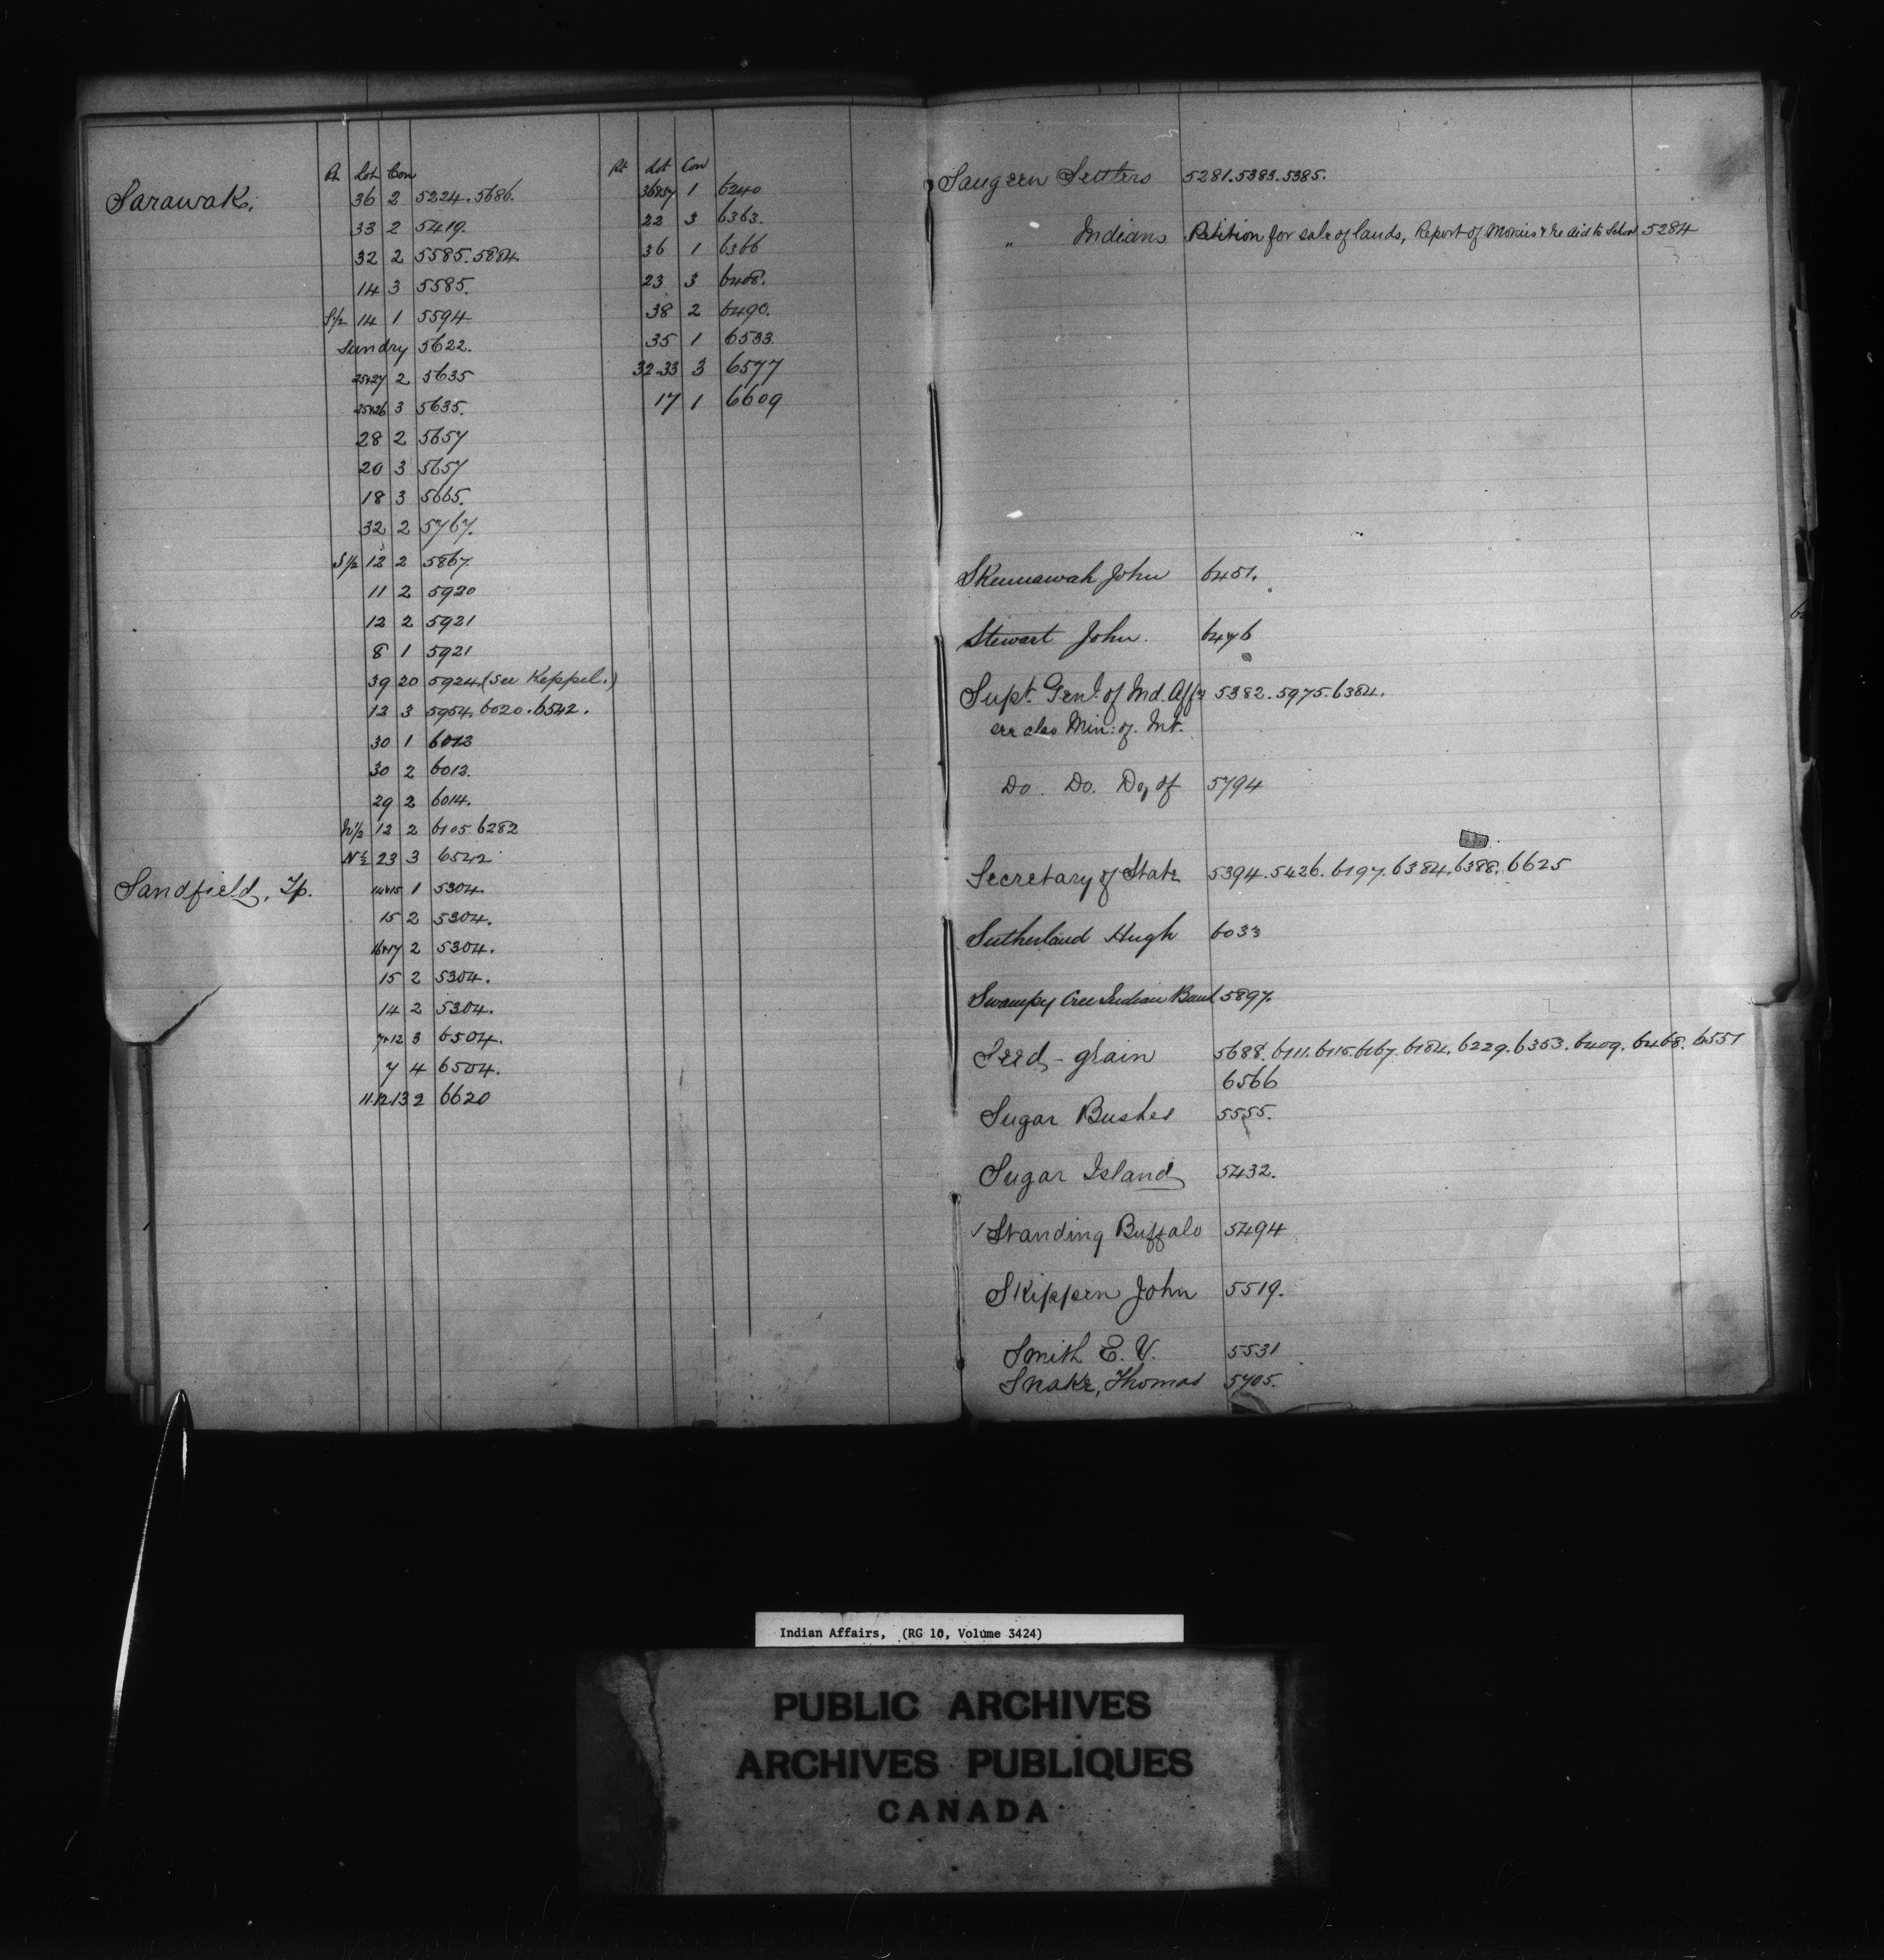 Pt Lot Con
Sarawak. 36 2 5224. 5686.
33 2 5419.
32 2 5585. 5884.
14 3 5585.
S½ 14 1 5594
Sundry 5622.
25&27 2 5635
25&26 3 5635.
28 2 5657
20 3 5657
18 3 5665.
32 2 5767.
S½ 12 2 5867
11 2 5920
12 2 5921
8 1 5921
39 20 5924 (see Keppel.)
13 3 5954. 6020. 6542.
30 1 6013
30 2 6013.
29 2 6014.
N½ 12 2 6105. 6282
N½ 23 3 6542
Sandfield, Tp. 14&15 1 5304.
15 2 5304.
16&17 2 5304.
15 2 5304.
14 2 5304.
7&12 3 6504.
7 4 6504.
11.12.13 2 6620
Pt Lot Con
36&37 1 6240
22 3 6363.
36 1 6366
23 3 6408.
38 2 6490.
35 1 6533.
32-33 3 6577
17 1 6609
Saugeen Settlers 5281. 5383. 5385.
" Indians Petition for sale of lands, Report of Monies & re aid to School 5284
Skennawah John 6451.
Stewart John. 6476
Supt. Genl. of Ind. Affs 5382. 5975. 6384.
see also Min: of Int.
Do. Do. Dep of 5794
Secretary of State 5394. 5426. 6197. 6384. 6388. 6625
Sutherland Hugh 6033
Swampy Cree Indian Band 5897.
Seed-grain 5688. 6111. 6115. 6167. 6184. 6229. 6353. 6409. 6468. 6551
6566
Sugar Bushes 5555.
Sugar Island 5432.
Standing Buffalo 5494
Skippen John 5519.
Smith E. V. 5531
Snake, Thomas 5705.
Indian Affairs, (RG 10, Volume 3424)
PUBLIC ARCHIVES
ARCHIVES PUBLIQUES
CANADA